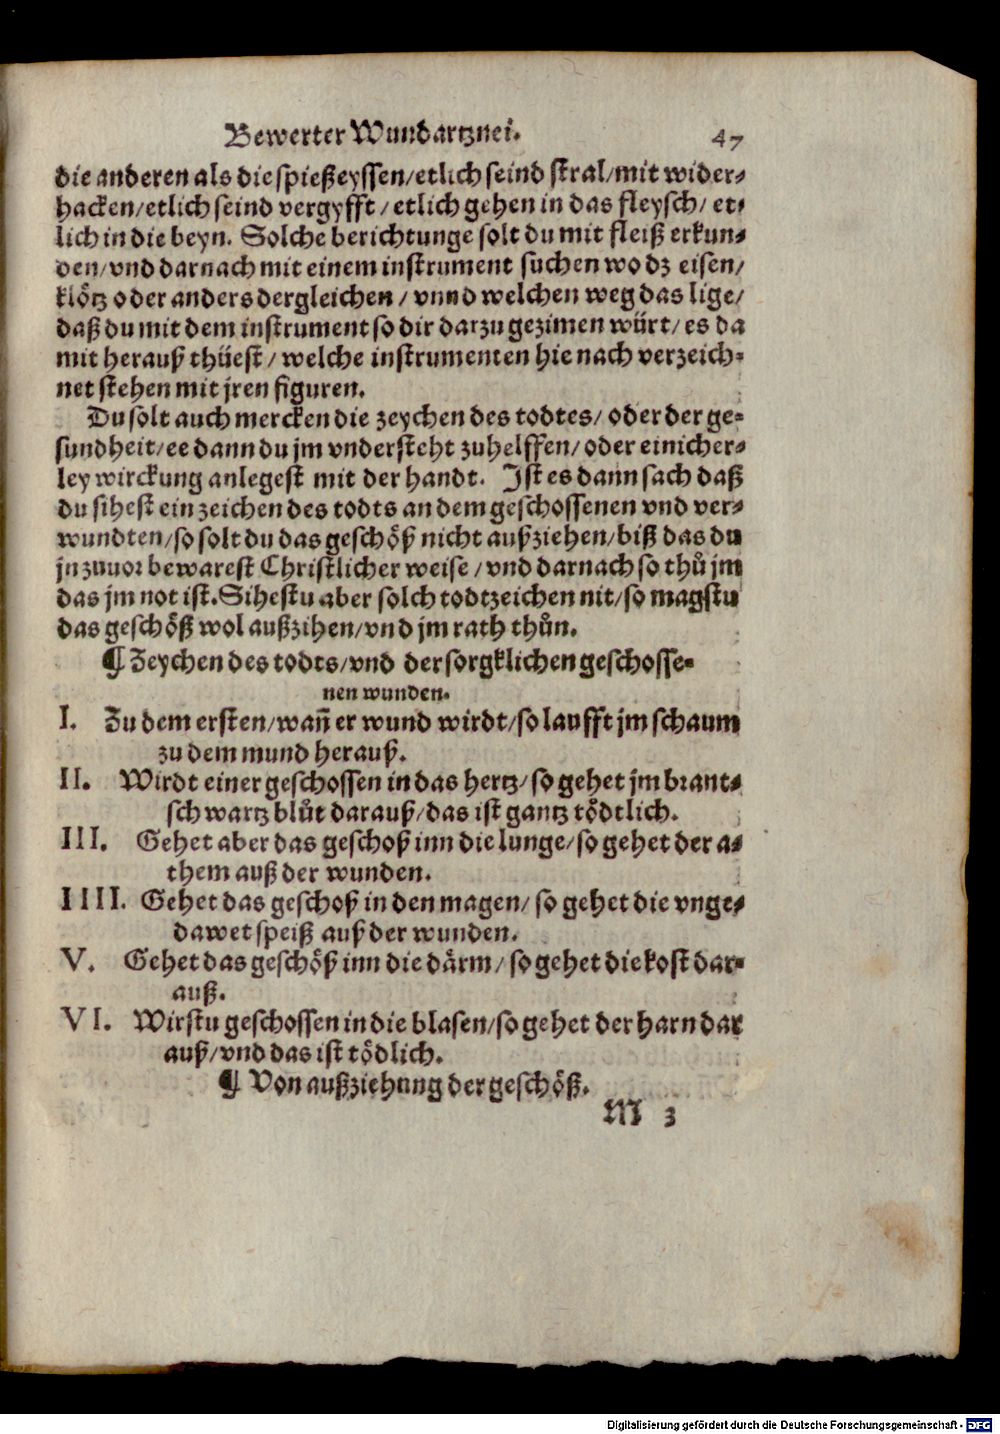 Bewerter Wundartznei. 47
die anderen als die spießeyssen/etlich seind stral/mit wider-
hacken/etlich seind vergyfft/etlich gehen in das fleysch/et-
lich in die beyn. Solche berichtunge solt du mit fleiß erkun-
den/vnd darnach mit einem instrument suchen wo dz eisen/
klötz oder anders dergleichen/vnnd welchen weg das lige/
daß du mit dem instrument so dir darzu gezimen würt/es da
mit herauß thüest/welche instrumenten hie nach verzeich-
net stehen mit jren figuren.
Du solt auch mercken die zeychen des todtes/oder der ge-
sundheit/ee dann du jm vndersteht zuhelffen/oder einicher-
ley wirckung anlegest mit der handt. Ist es dann sach daß
du sihest ein zeichen des todts an dem geschossenen vnd ver-
wundten/so solt du das geschöß nicht außziehen/biß das du
jn zuuor bewarest Christlicher weise/vnd darnach so thů jm
das jm not ist. Sihestu aber solch todtzeichen nit/so magstu
das geschöß wol außzihen/vnd jm rath thůn.
¶ Zeychen des todts/vnd der sorgklichen geschosse-
nen wunden.
I. Zu dem ersten/wañ er wund wirdt/so laufft jm schaum
zu dem mund herauß.
II. Wirdt einer geschossen in das hertz/so gehet jm brant-
schwartz blůt darauß/das ist gantz tödtlich.
III. Gehet aber das geschoß inn die lunge/so gehet der a-
them auß der wunden.
IIII. Gehet das geschoß in den magen/so gehet die vnge-
dawet speiß auß der wunden.
V. Gehet das geschöß inn die därm/so gehet die kost dar-
auß.
VI. Wirstu geschossen in die blasen/so gehet der harn dar
auß/vnd das ist tödlich.
¶ Von außziehung der geschöß.
M 3
Digitalisierung gefördert durch die Deutsche Forschungsgemeinschaft - DFG